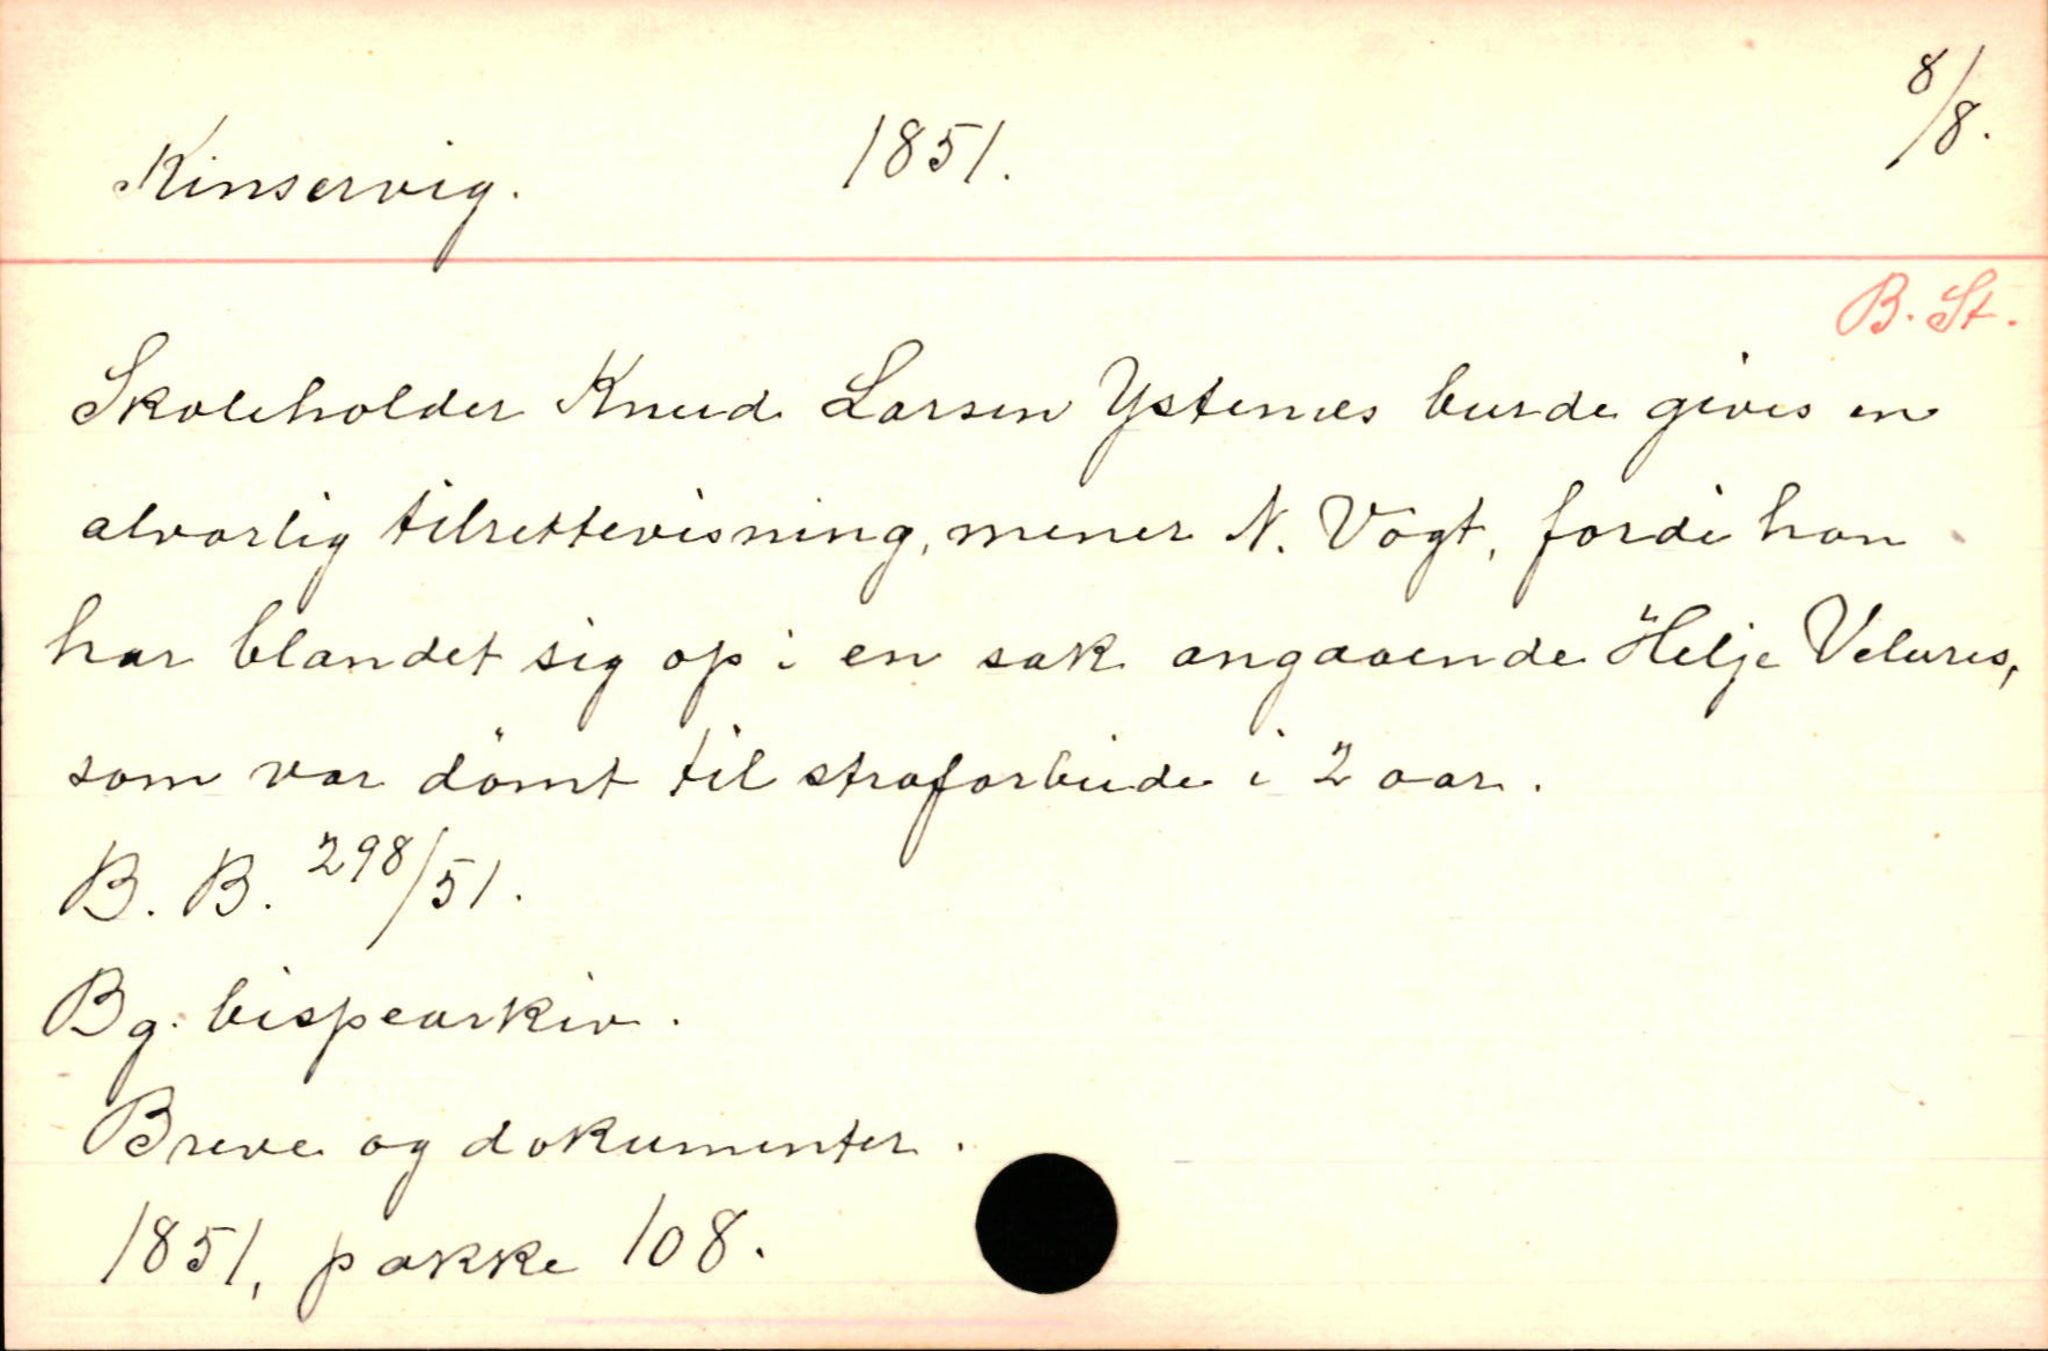 Kinservig. 1851. 8/8.
B. St.
Skoleholder Knud Larsen Ystenæs burde gives en
alvorlig tilrettevisning, mener N. Vogt, fordi han
har blandet sig op i en sak angaaende Helje Velures,
som var dömt til strafarbeide i 2 aar.
B. B. 298/51.
Bg. bispearkiv.
Breve og dokumenter.
1851, pakke 108.